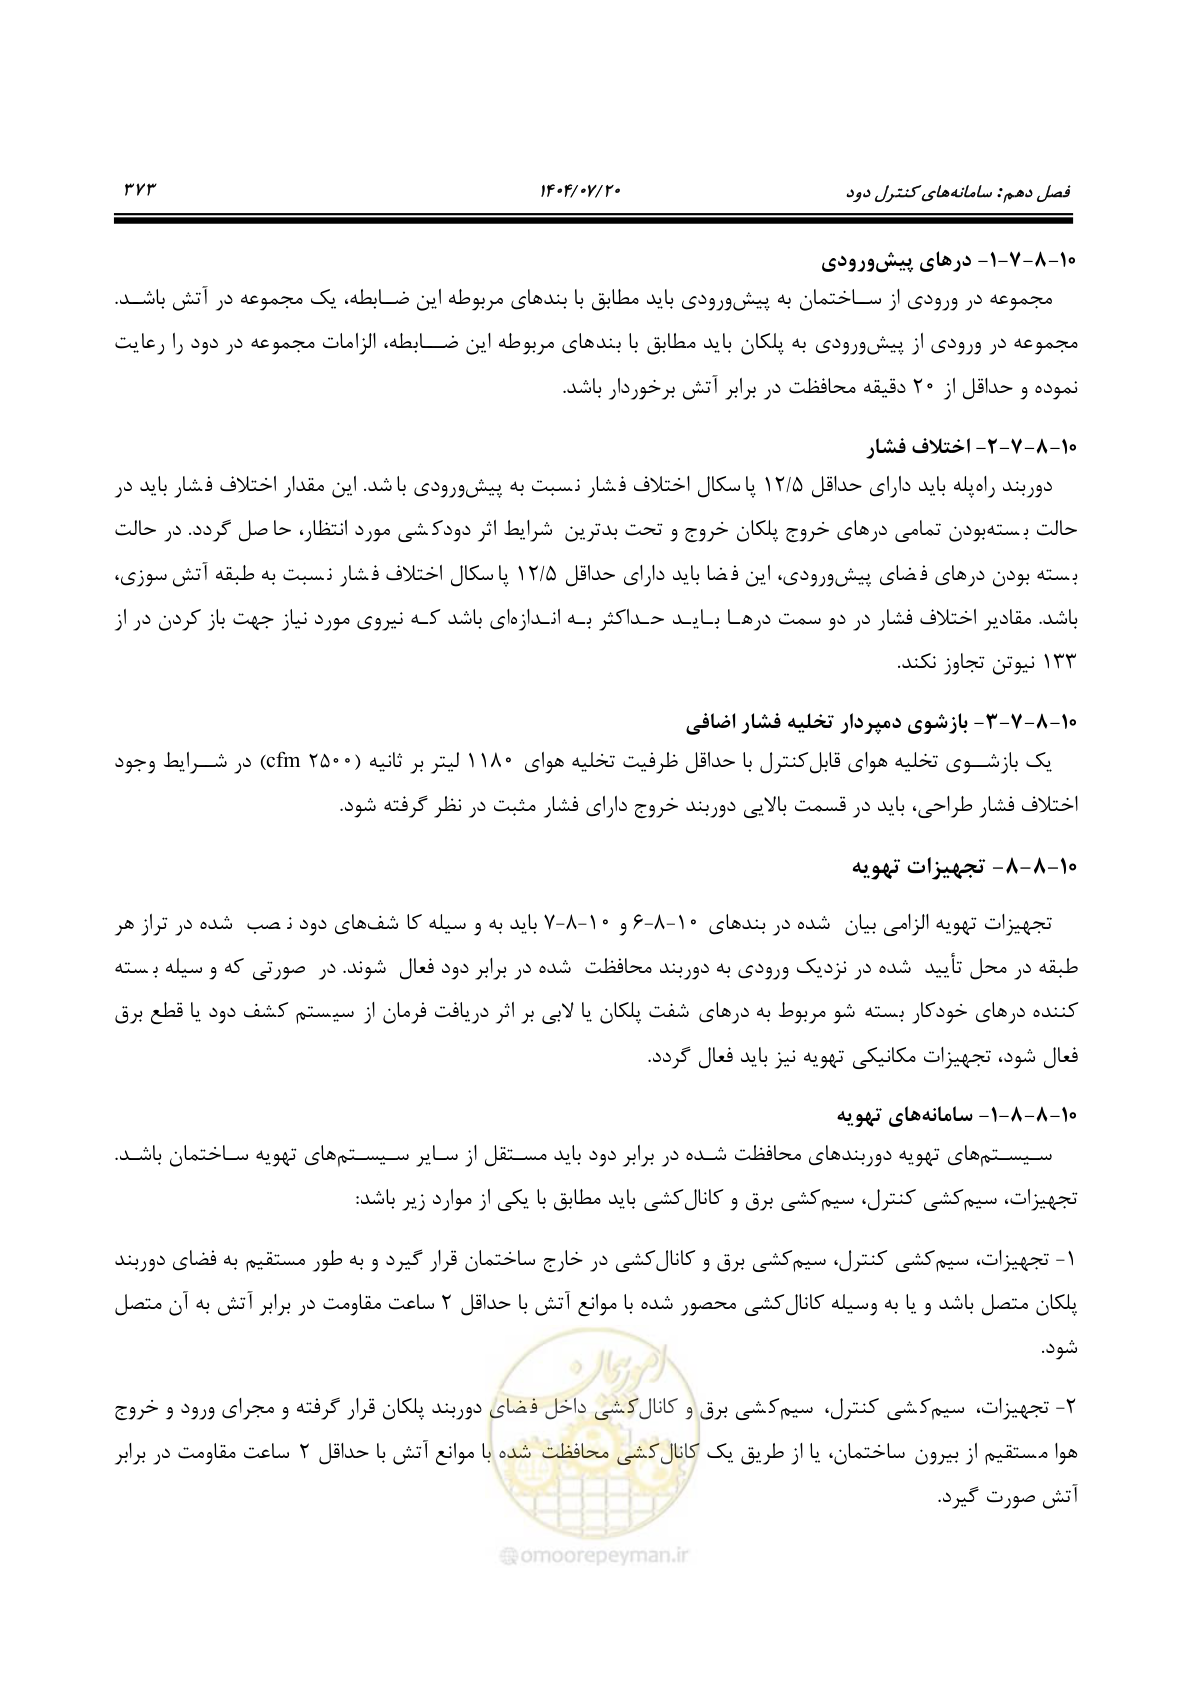 فصل دهم: سامانه‌های کنترل دود ۱۴۰۴/۰۷/۲۰ ۳۷۳
۱۰-۸-۷-۱- درهای پیش‌ورودی
مجموعه در ورودی از ساختمان به پیش‌ورودی باید مطابق با بندهای مربوطه این ضابطه، یک مجموعه در آتش باشد.
مجموعه در ورودی از پیش‌ورودی به پلکان باید مطابق با بندهای مربوطه این ضابطه، الزامات مجموعه در دود را رعایت
نموده و حداقل از ۲۰ دقیقه محافظت در برابر آتش برخوردار باشد.
۱۰-۸-۷-۲- اختلاف فشار
دوربند راه‌پله باید دارای حداقل ۱۲/۵ پاسکال اختلاف فشار نسبت به پیش‌ورودی باشد. این مقدار اختلاف فشار باید در
حالت بسته‌بودن تمامی درهای خروج پلکان خروج و تحت بدترین شرایط اثر دودکشی مورد انتظار، حاصل گردد. در حالت
بسته بودن درهای فضای پیش‌ورودی، این فضا باید دارای حداقل ۱۲/۵ پاسکال اختلاف فشار نسبت به طبقه آتش سوزی،
باشد. مقادیر اختلاف فشار در دو سمت درها باید حداکثر به اندازه‌ای باشد که نیروی مورد نیاز جهت باز کردن در از
۱۳۳ نیوتن تجاوز نکند.
۱۰-۸-۷-۳- بازشوی دمپردار تخلیه فشار اضافی
یک بازشوی تخلیه هوای قابل‌کنترل با حداقل ظرفیت تخلیه هوای ۱۱۸۰ لیتر بر ثانیه (۲۵۰۰ cfm) در شرایط وجود
اختلاف فشار طراحی، باید در قسمت بالایی دوربند خروج دارای فشار مثبت در نظر گرفته شود.
۱۰-۸-۸- تجهیزات تهویه
تجهیزات تهویه الزامی بیان شده در بندهای ۱۰-۸-۶ و ۱۰-۸-۷ باید به وسیله کاشف‌های دود نصب شده در تراز هر
طبقه در محل تأیید شده در نزدیک ورودی به دوربند محافظت شده در برابر دود فعال شوند. در صورتی که وسیله بسته
کننده درهای خودکار بسته شو مربوط به درهای شفت پلکان یا لابی بر اثر دریافت فرمان از سیستم کشف دود یا قطع برق
فعال شود، تجهیزات مکانیکی تهویه نیز باید فعال گردد.
۱۰-۸-۸-۱- سامانه‌های تهویه
سیستم‌های تهویه دوربندهای محافظت شده در برابر دود باید مستقل از سایر سیستم‌های تهویه ساختمان باشد.
تجهیزات، سیم‌کشی کنترل، سیم‌کشی برق و کانال‌کشی باید مطابق با یکی از موارد زیر باشد:
۱- تجهیزات، سیم‌کشی کنترل، سیم‌کشی برق و کانال‌کشی در خارج ساختمان قرار گیرد و به طور مستقیم به فضای دوربند
پلکان متصل باشد و یا به وسیله کانال‌کشی محصور شده با موانع آتش با حداقل ۲ ساعت مقاومت در برابر آتش به آن متصل
شود.
۲- تجهیزات، سیم‌کشی کنترل، سیم‌کشی برق و کانال‌کشی داخل فضای دوربند پلکان قرار گرفته و مجرای ورود و خروج
هوا مستقیم از بیرون ساختمان، یا از طریق یک کانال‌کشی محافظت شده با موانع آتش با حداقل ۲ ساعت مقاومت در برابر
آتش صورت گیرد.
امور پیمان
@omoorepeyman.ir